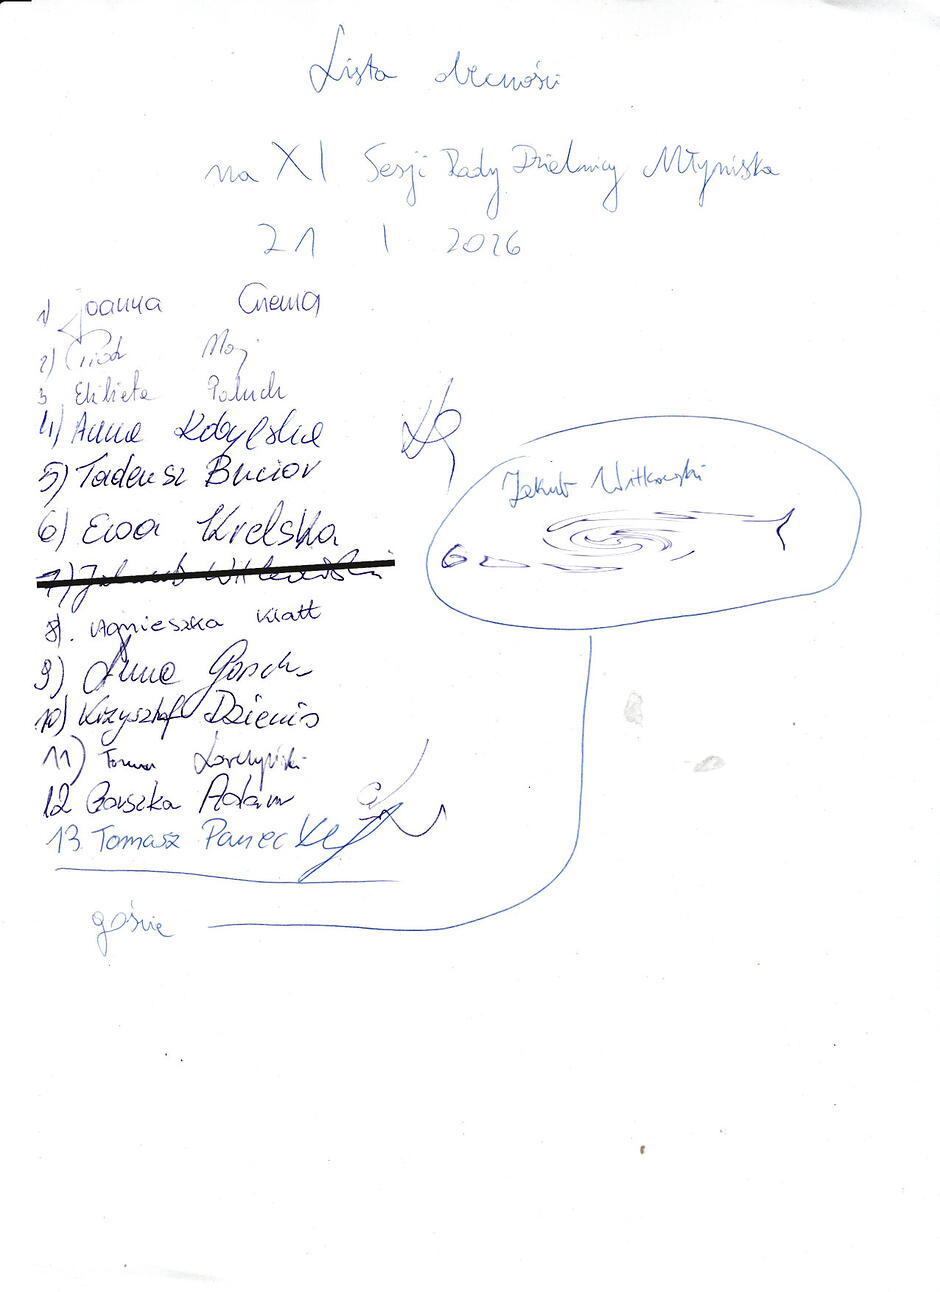 Lista obecności
na XI Sesji Rady Dzielnicy Młyniska
21 I 2026
1) Joanna
2) Piotr
3 Elżbieta Paluch
4) Anna Kobylska
5) Tadeusz Bucior
6) Ewa Krelska
7) Jakub Witkowski
8). Agnieszka Klatt
9) Anna
10) Krzysztof Dzienis
11) Tomasz
12 Gorszka Adam
13 Tomasz Panecki
Jakub Witkowski
goście